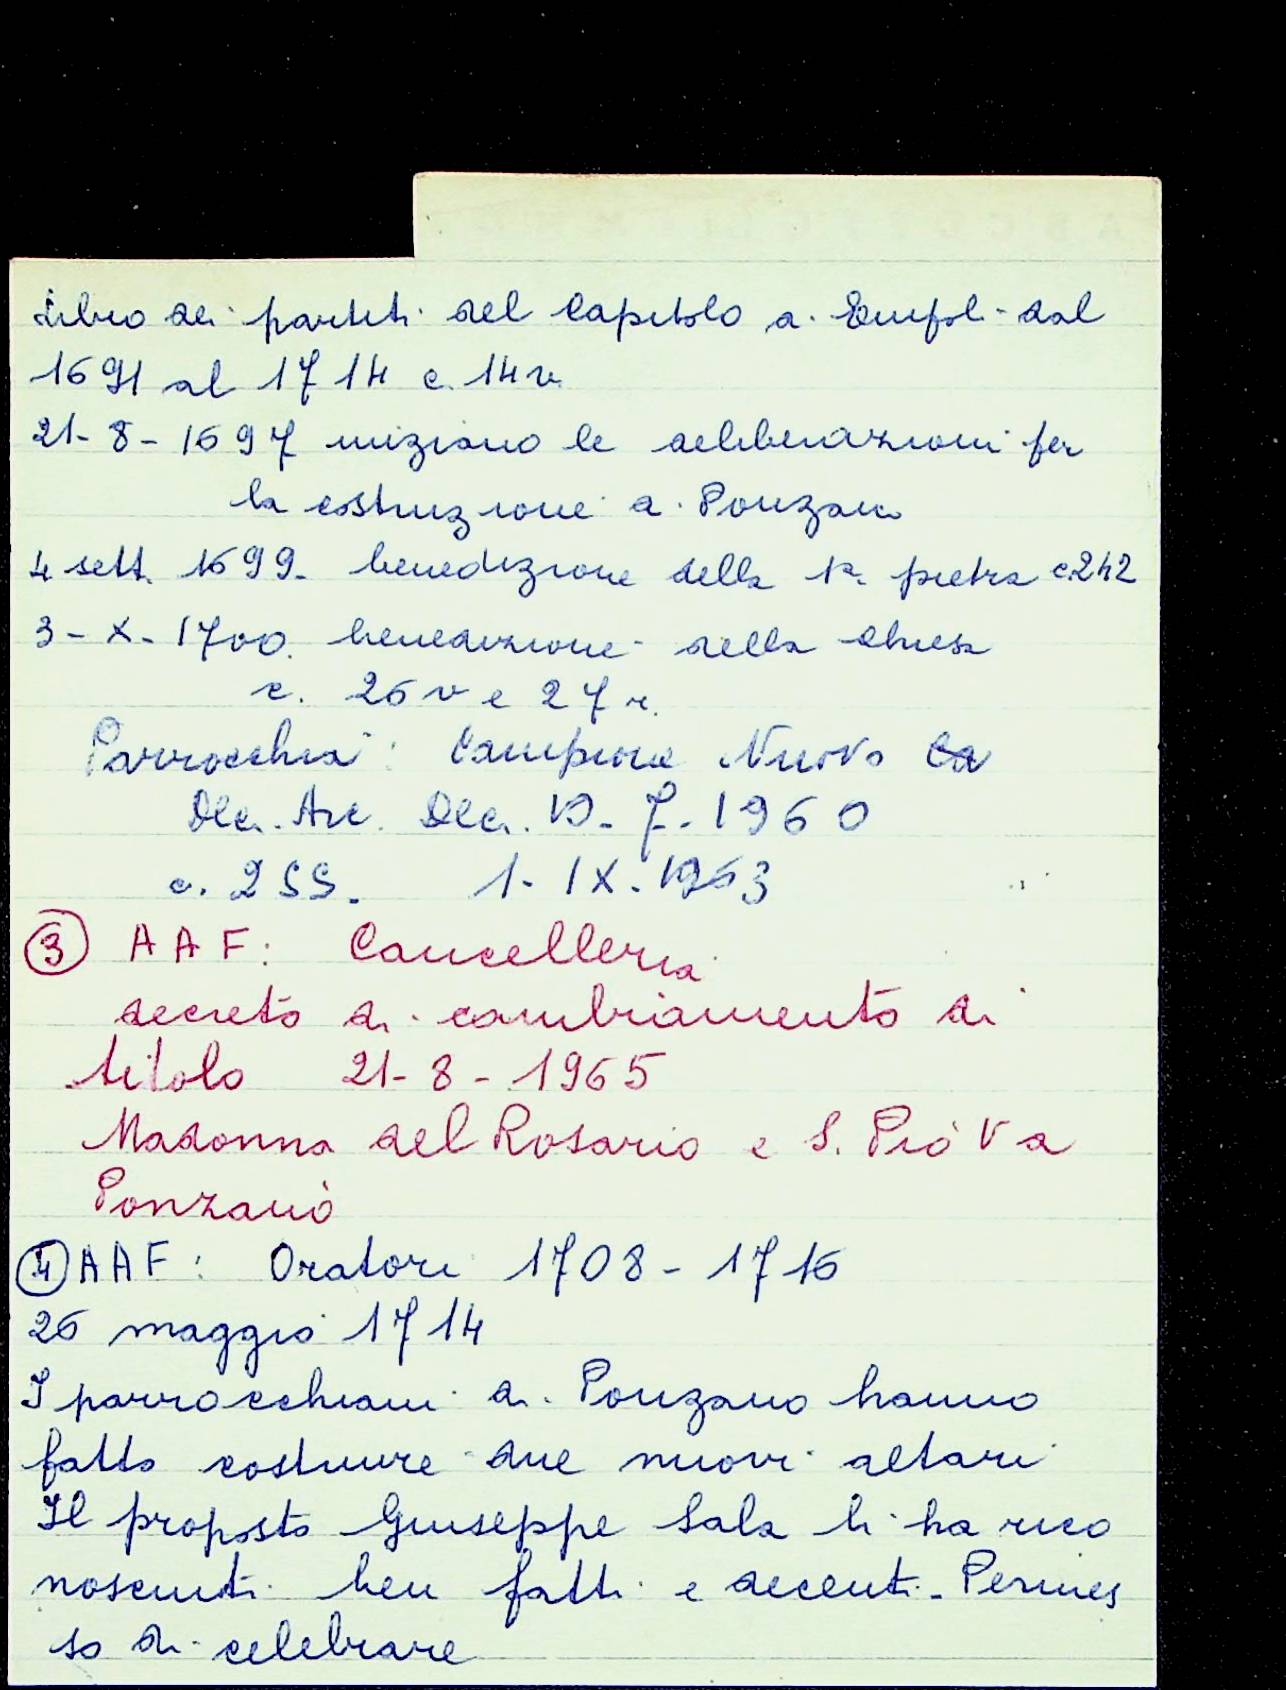 Libro dei partiti del Capitolo di Empoli dal
1691 al 1714 c. 14v
21-8-1697 iniziano le deliberazioni per
la costruzione a Ponzano
4 sett. 1699. benedizione della 1a pietra c. 242
3-X-1700. benedizione della chiesa
c. 26v e 27r.
Parrocchia: Campione Nuovo
Arc. 19-7-1960
c. 255. 1-IX-1963
3 AAF: Cancelleria
decreto di cambiamento di
titolo 21-8-1965
Madonna del Rosario e S. Pio V a
Ponzano
4 AAF: Oratori 1708-1716
26 maggio 1714
I parrocchiani di Ponzano hanno
fatto costruire due nuovi altari
Il proposto Giuseppe Sala li ha rico
nosciuti ben fatti e decenti - Permes
so di celebrare